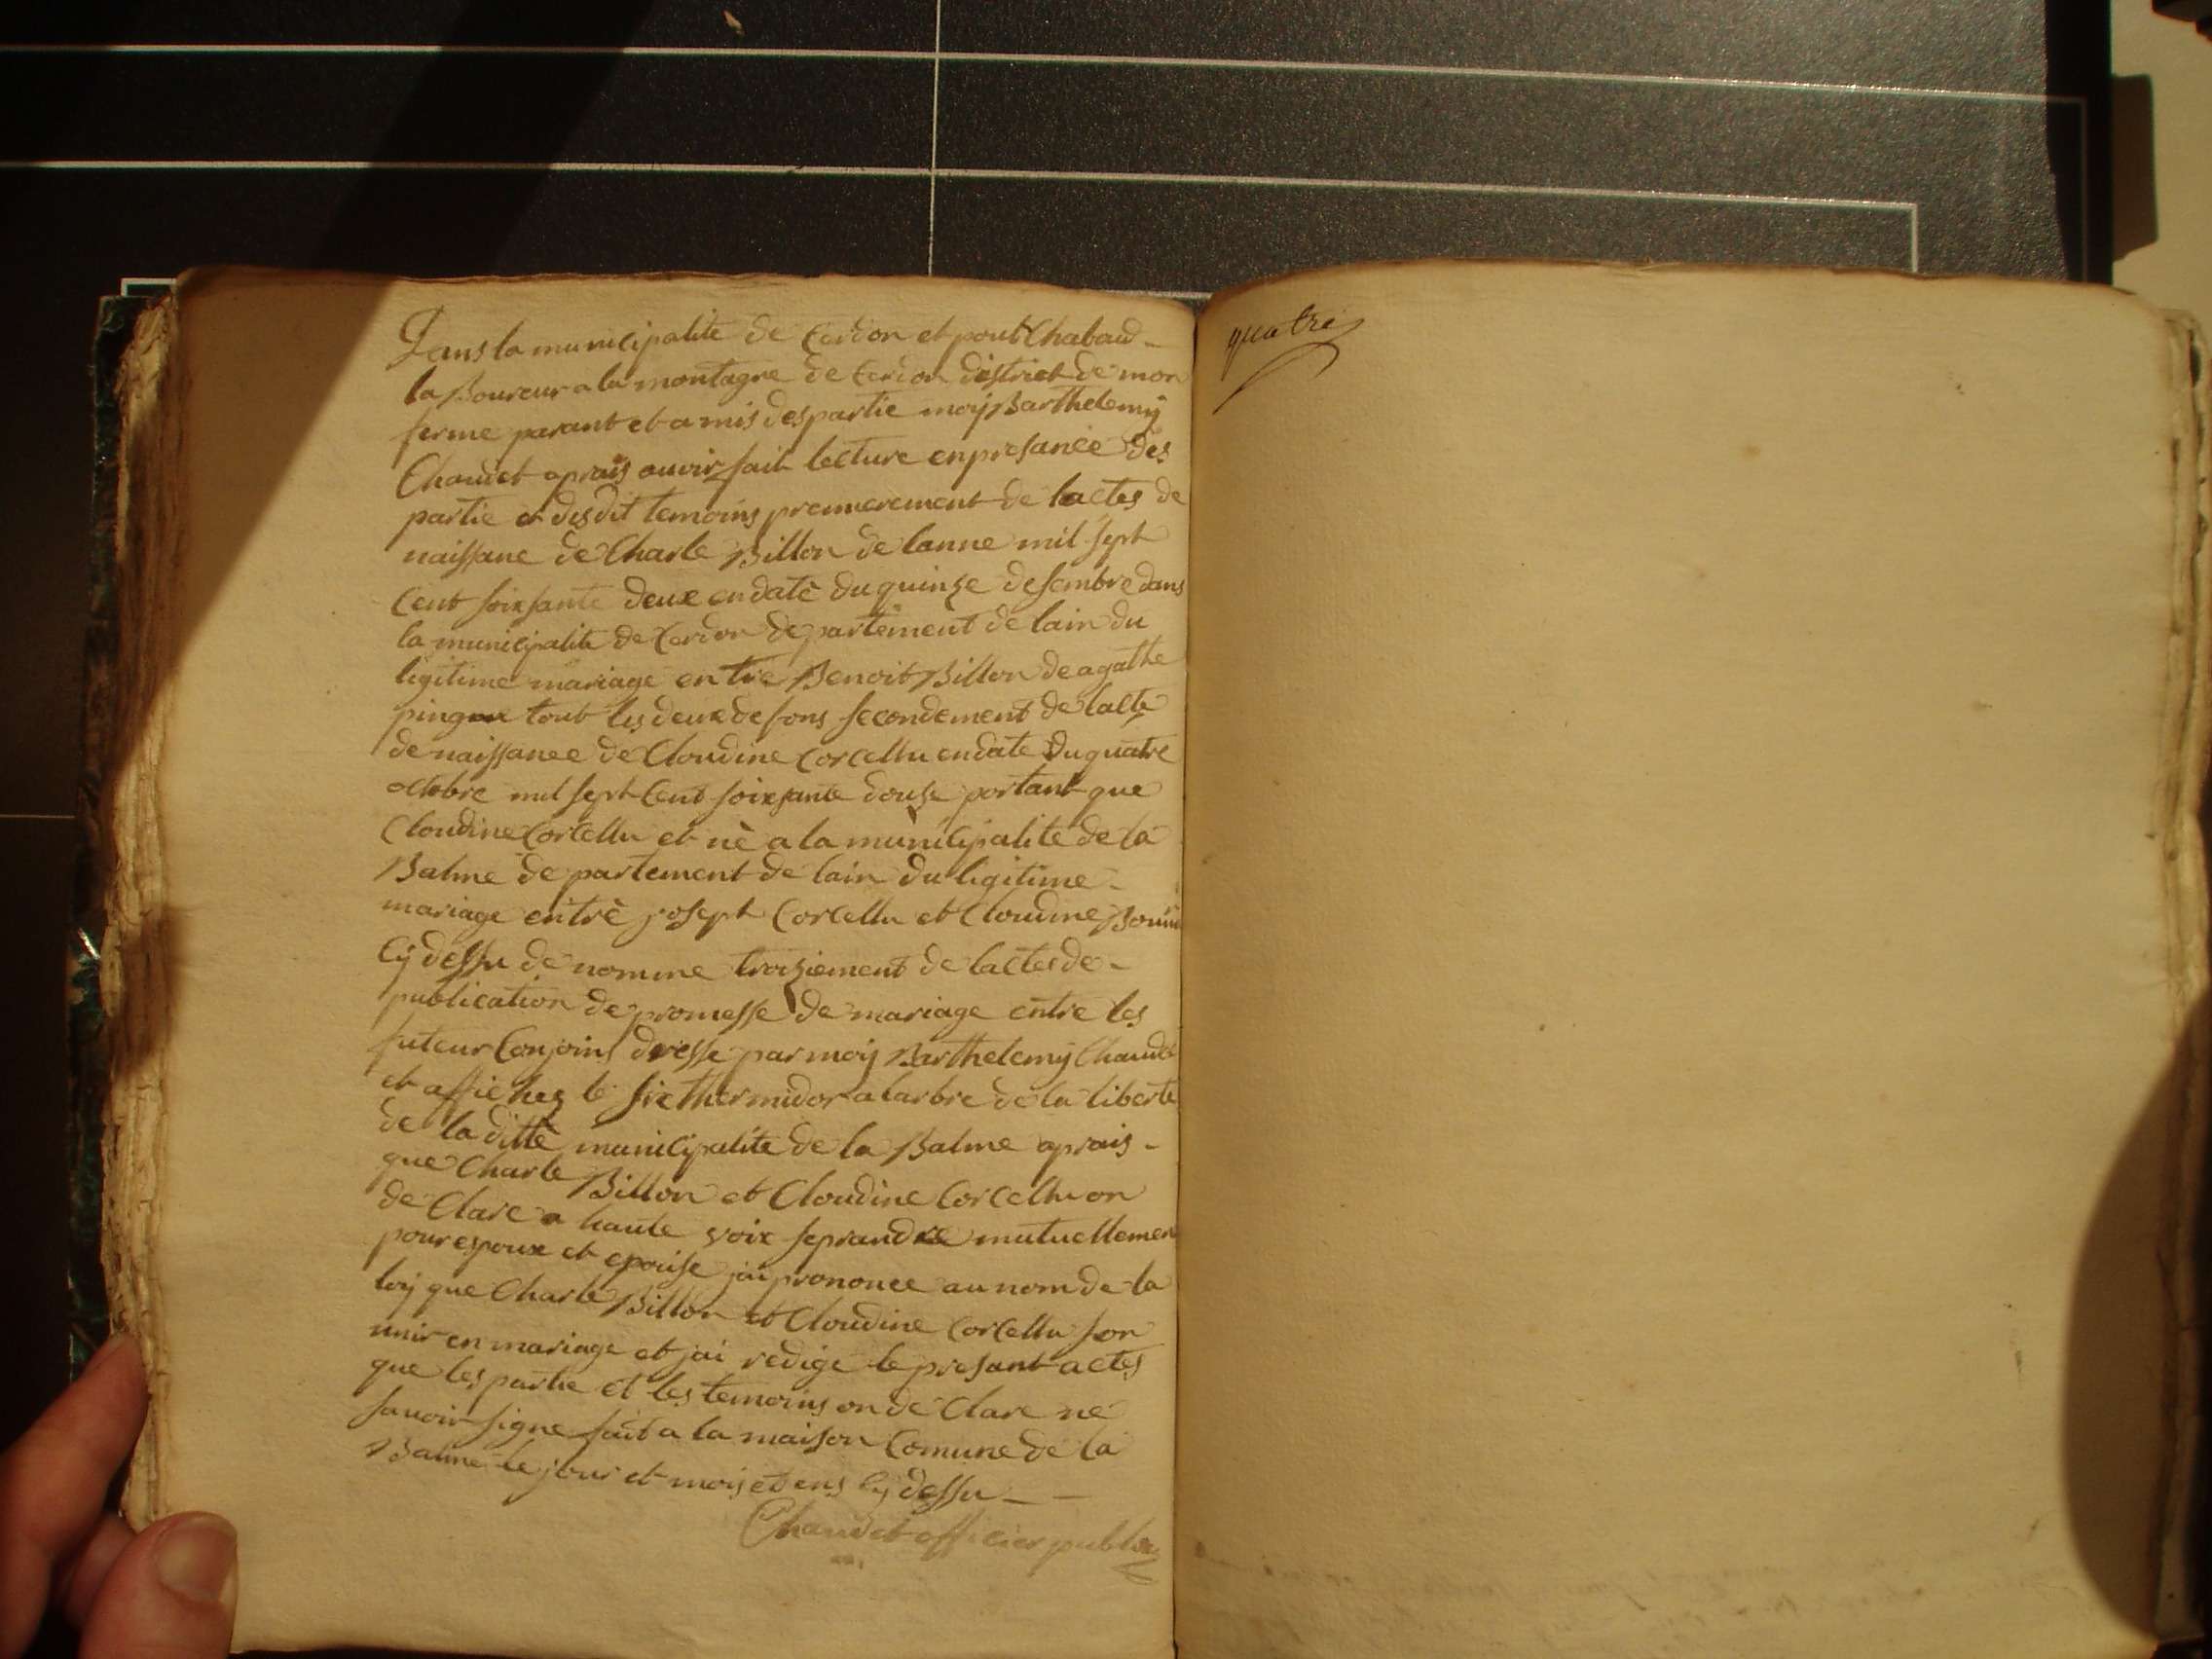 Dans la municipalite de Cerdon et pont Chabaud
la Boureur a la montagne de Cerdon district de mon
ferme parant et amis des partie moÿ Barthelemÿ
Chaudet aprais auvir fait lecture en presance des
partie et des dit temoins premierement de lactes de
naissane de Charle Billon de lanne mil sept
Cent soixsante deux en datè du quinze desembre dans
la municipalite de Cerdon departement de lain du
ligitime mariage entre Benoit Billon de agathe
tout les deux defons secondement de lacte
de naissance de Cloudine Corcellu en date du quatre
octobre mil sept Cent soixsante douse portant que
Cloudine Corcellu et nè a la municipalite de la
Balme departement de lain du ligitime
mariage entrè josept Corcellu et Cloudine
Cÿ dessu de nomme troiziement de lactes de
publication de promesse de mariage entre les
futeur Conjoins dresse par moÿ Barthelemÿ Chaudet
et affichez le six thermidor a larbre de la liberte
de la dittè municipalite de la Balme aprais
que Charle Billon et Cloudine Corcellu on
de Clare a haute voix se prandre mutuellemen
pour espoux et epouse jai prononce au nom de la
loÿ que Charle Billon et Cloudine Corcellu son
unir en mariage et jai redige le presant actes
que les partie et les temoins on de Clare ne
sauoir signe fait a la maison Comune de la
Balme le jour et mois et ens Cÿ dessu
Chaudet officier public
quatre